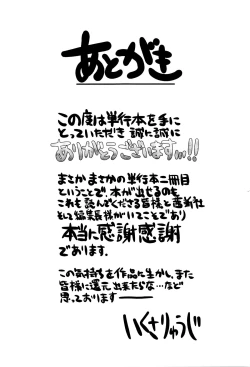 あとがき
この度は単行本を手に
とっていただき 誠に誠に
ありがとうございます…!!
まさかまさかの単行本二冊目
ということで、本が出せるのも
これを読んでくださる皆様と茜新社
そして編集長様がいてこそであり
本当に感謝感謝
であります.
この気持ちを作品に生かし、また
皆様に還元出来たらな…など
思っております――
いくさりゅうじ